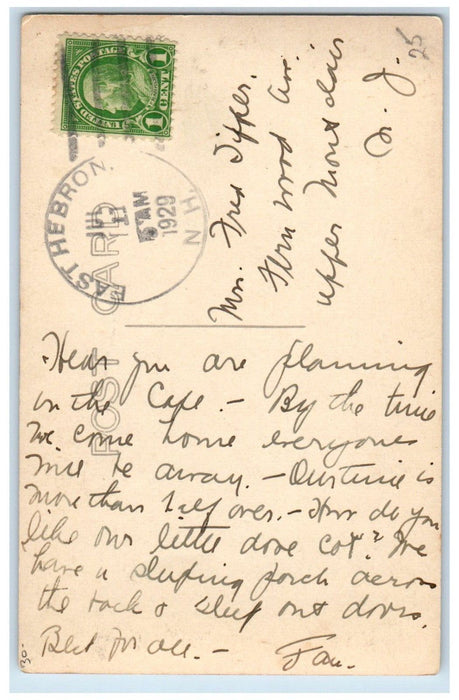 25
UNITED STATES POSTAGE
1 CENT 1
EAST HEBRON, N.H.
JUL
11
AM
1929
POST CARD
Mrs. Fred Tipper.
Fernwood Ave.
Upper Montclair
N. J.
Hear you are planning
on the Cape. – By the time
we come home everyone
will be away. – Our time is
more than half over. – How do you
like our little dove cot? We
have a sleeping porch across
the back & sleep out doors.
Best for all. –
Fan.
30-